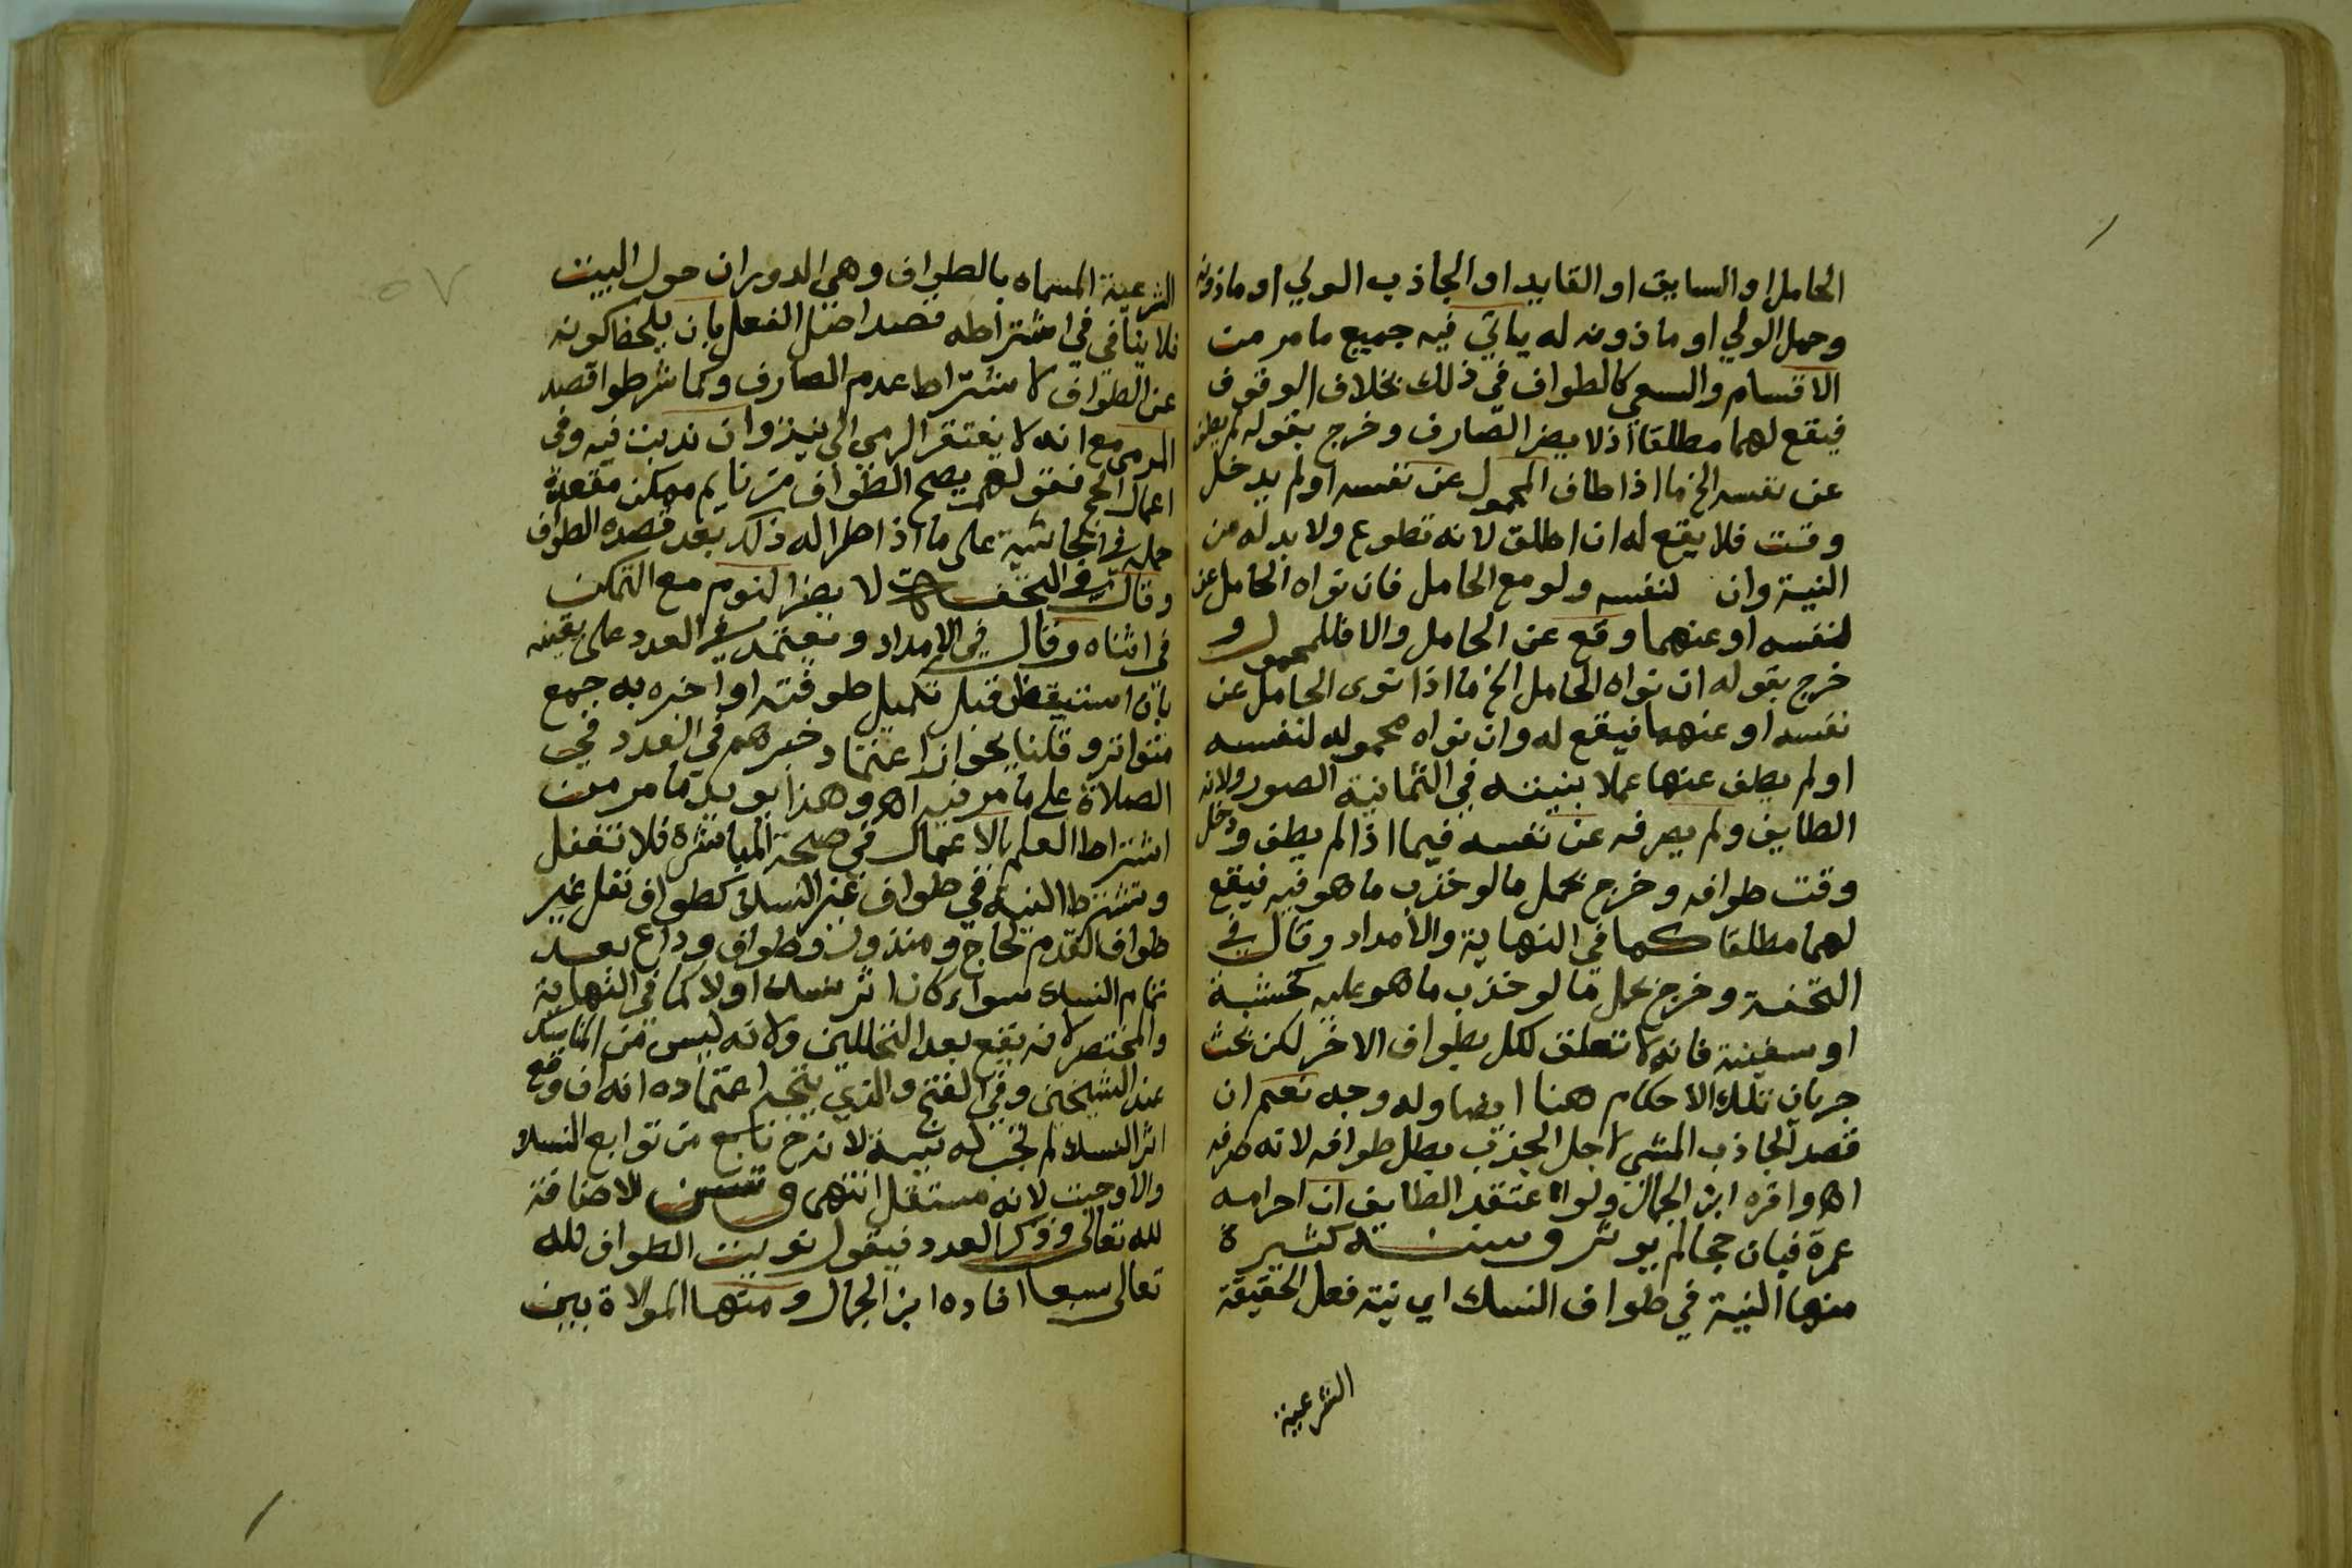 الحامل او السايق او القايد او الجاذب الولي او ماذونه
وحمل الولي او ماذونه له ياتي فيه جميع ما مر من
الاقسام والسعي كالطواف في ذلك بخلاف الوقوف
فيقع لهما مطلقا اذ لا يضر الصارف وخرج بقوله لم يطف
عن نفسه الخ ما اذا طاف المحمول عن نفسه او لم يدخل
وقت فلا يقع له ان اطلق لانه تطوع ولا بد له من
النية وان لنفسه ولو مع الحامل فان نواه الحامل عن
لنفسه او عنهما وقع عن الحامل والا فللمحمول و
خرج بقوله ان نواه الحامل الخ ما اذا نوى الحامل عن
نفسه او عنهما فيقع له وان نواه محموله لنفسه
او لم يطف عنها عملا بنيته في الثمانية الصور ولانه
الطايف ولم يصرفه عن نفسه فيما اذا لم يطف ودخل
وقت طوافه وخرج بحمل ما لو جذب ما هو فيه فيقع
لهما مطلقا كما في النهاية والامداد وقال في
التحفة وخرج بحمل ما لو جذب ما هو عليه كخشبة
او سفينة فانه لا تعلق لكل بطواف الاخر لكن بحث
جريان تلك الاحكام هنا ايضا وله وجه نعم ان
قصد الجاذب المشي لاجل الجذب بطل طوافه لانه صرفه
اه واقره ابن الجمال ولو اعتقد الطايف ان احرامه
عمرة فبان حجا لم يوثر وسننه كثيرة
منها النية في طواف النسك اي نية فعل الحقيقة
الشرعية
٥٧
الشرعية المسماه بالطواف وهي الدوران حول البيت
فلا ينافي في اشتراطه قصد اصل الفعل بان يلحظ كونه
عن الطواف لاشتراط عدم الصارف وكما شرطوا قصد
المرمى مع انه لا يفتقر الرمي الى نية وان ندبت فيه وفي
اعمال الحج فقولهم يصح الطواف من نايم ممكن مقعدة
حمله في الحاشية على ما اذا طرا له ذلك بعد قصده الطواف
وقال في التحفة لا يضر النوم مع التمكن
في اثناه وقال في الامداد ويعتمد في العدد على يقينه
بان استيقظ قبل تكميل طوفته او اخبره به جمع
متواتر وقلنا بجواز اعتماد خبرهم في العدد في
الصلاة على ما مر فيه اه وهذا يويد ما مر من
اشتراط العلم بالاعمال في صحة المباشرة فلا تغفل
وتشترط النية في طواف غير النسك كطواف نفل غير
طواف القدوم لحاج ومنذور وطواف وداع بعد
تمام النسك سواء كان اثر نسك اولا كما في النهاية
والمختصر لانه يقع بعد التحللين ولانه ليس من المناسك
عند الشيخين وفي الفتح والذي يتجه اعتماده انه ان وقع
اثر النسك لم تجب له نية لانه ح تابع من توابع النسك
والا وجبت لانه مستقل انتهى وتسن الاضافة
لله تعالى وذكر العدد فيقول نويت الطواف لله
تعالى سبعا افاده ابن الجمال ومنها الموالاة بين